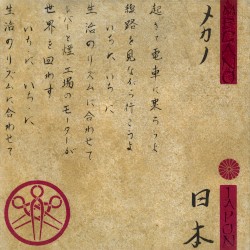 メカノ
起きて電車に乗ろうよ
線路を見ながら行こうよ
いちに、いちに、
レバーと煙 工場のモーターが
生活のリズムに合わせて
世界を回わす
いちに、いちに、
生活のリズムに合わせて
日本
JAPON